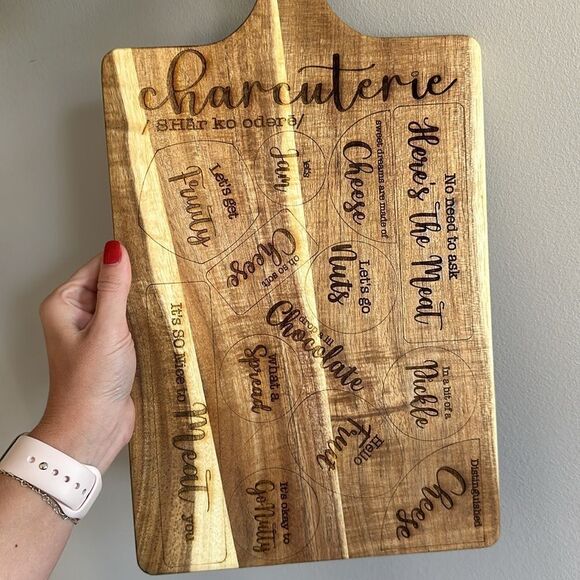 charcuterie
/ SHär ko oderē/
Let's get
Fruity
let's
Jam
sweet dreams are made of
Cheese
No need to ask
Here's the Meat
oh so soft
Cheese
Let's go
Nuts
It's SO Nice to
Meat you
What a
Spread
Chocolate
In a bit of a
Pickle
Hello
Fruit
It's okay to
Go Nutty
Distinguished
Cheese